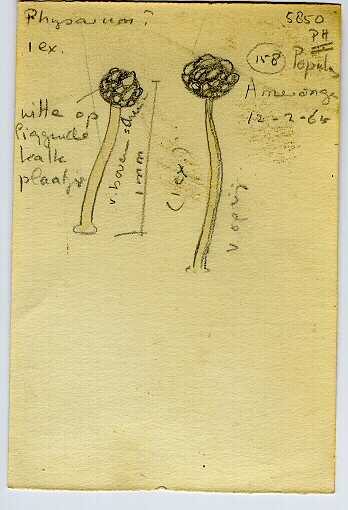 Physarum?
1 ex.
5850
PH
158 Populus
Amerongen
12-2-65
witte op
liggende
kalk
plaatjes
v. boven schuin
1 mm
(1 ex)
v opzij